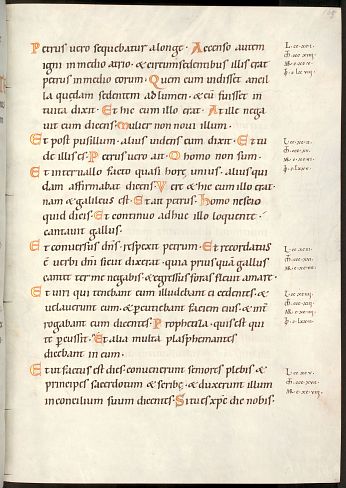 Petrus vero sequebatur alonge. Accenso autem
igni in medio atrio. & circumsedentibus illis erat
petrus in medio eorum. Quem cum vidisset ancil
la quedam sedentem ad lumen. & eū fuisset in
tuita dixit. Et hic cum illo erat. At ille nega
vit eum dicens. Mulier non novi illum.
Et post pusillum. alius videns eum dixit. Et tu
de illis es. Petrus vero ait. O homo non sum.
Et intervallo facto quasi horę unius. alius qui
dam affirmabat dicens. Vere & hic cum illo erat.
nam & galileus est. Et ait petrus. Homo nescio
quid dicis. Et continuo adhuc illo loquente.
cantavit gallus.
Et conversus dn̄s respexit petrum. Et recordatus
ē verbi dn̄i sicut dixerat. quia prius quā gallus
cantet ter me negabis. & egressus foras flevit amare.
Et viri qui tenebant eum illudebant ei cedentes. &
velaverunt eum. & percutiebant faciem eius. &
rogabant eum dicentes. Prophetiza. quis est qui
te percussit. Et alia multa blasphemantes
dicebant in eum.
Et ut factus est dies. convenerunt seniores plebis &
principes sacerdotum & scribę. & duxerunt illum
in concilium suum dicentes. Si tu es xp̄c dic nobis.